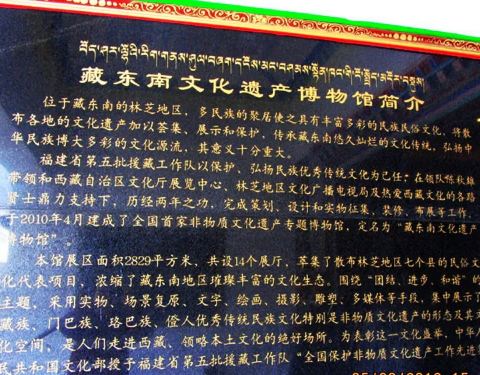 藏东南文化遗产博物馆简介
位于藏东南的林芝地区，多民族的聚居使之具有丰富多彩的民族民俗文化，将散
布各地的文化遗产加以荟集、展示和保护，传承藏东南悠久灿烂的文化传统，弘扬中
华民族博大多彩的文化源流，其意义十分重大。
福建省第五批援藏工作队以保护、弘扬民族优秀传统文化为己任；在领队陈秋雄
带领和西藏自治区文化厅展览中心、林芝地区文化广播电视局及热爱西藏文化的各路
贤士鼎力支持下，历经两年之功，完成策划、设计和实物征集、装修、布展等工作，
于2010年4月建成了全国首家非物质文化遗产专题博物馆，定名为“藏东南文化遗产
博物馆”。
本馆展区面积2829平方米，共设14个展厅，萃集了散布林芝地区七个县的民俗文
化代表项目，浓缩了藏东南地区璀璨丰富的文化生态。围绕“团结、进步、和谐”的
主题，采用实物、场景复原、文字、绘画、摄影、雕塑、多媒体等手段，集中展示了
藏族、门巴族、珞巴族、僜人优秀传统民族文化特别是非物质文化遗产的形态及其文
化空间，是人们走进西藏、领略本土文化的绝好场所。为表彰这一文化盛举，中华人
民共和国文化部授于福建省第五批援藏工作队“全国保护非物质文化遗产工作先进